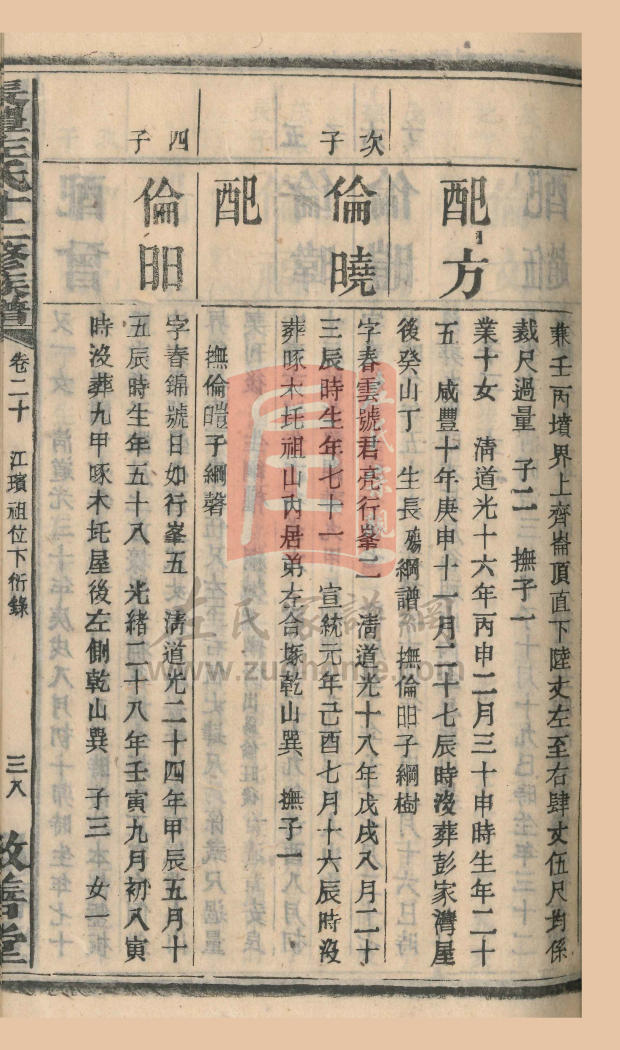 兼壬丙墳界上齊崙頂直下陸丈左至右肆丈伍尺均係
裁尺過量 子二 撫子一
配方
業十女 清道光十六年丙申二月三十申時生年二十
五 咸豐十年庚申十一月二十七辰時沒葬彭家灣屋
後癸山丁 生長殤綱譜 撫倫昍子綱樹
次子
倫曉
字春雲號君亮行峯二 清道光十八年戊戌八月二十
三辰時生年七十一 宣統元年己酉七月十六辰時沒
葬啄木圫祖山內居弟左合塚乾山巽 撫子一
配
撫倫暟子綱磬
四子
倫昍
字春錦號日如行峯五 清道光二十四年甲辰五月十
五辰時生年五十八 光緒二十八年壬寅九月初八寅
時沒葬九甲啄木圫屋後左側乾山巽 子三 女一
左氏十二修族譜
卷二十 江璸祖位下衍錄
三八
敦善堂
左氏家譜網
www.zuohome.com